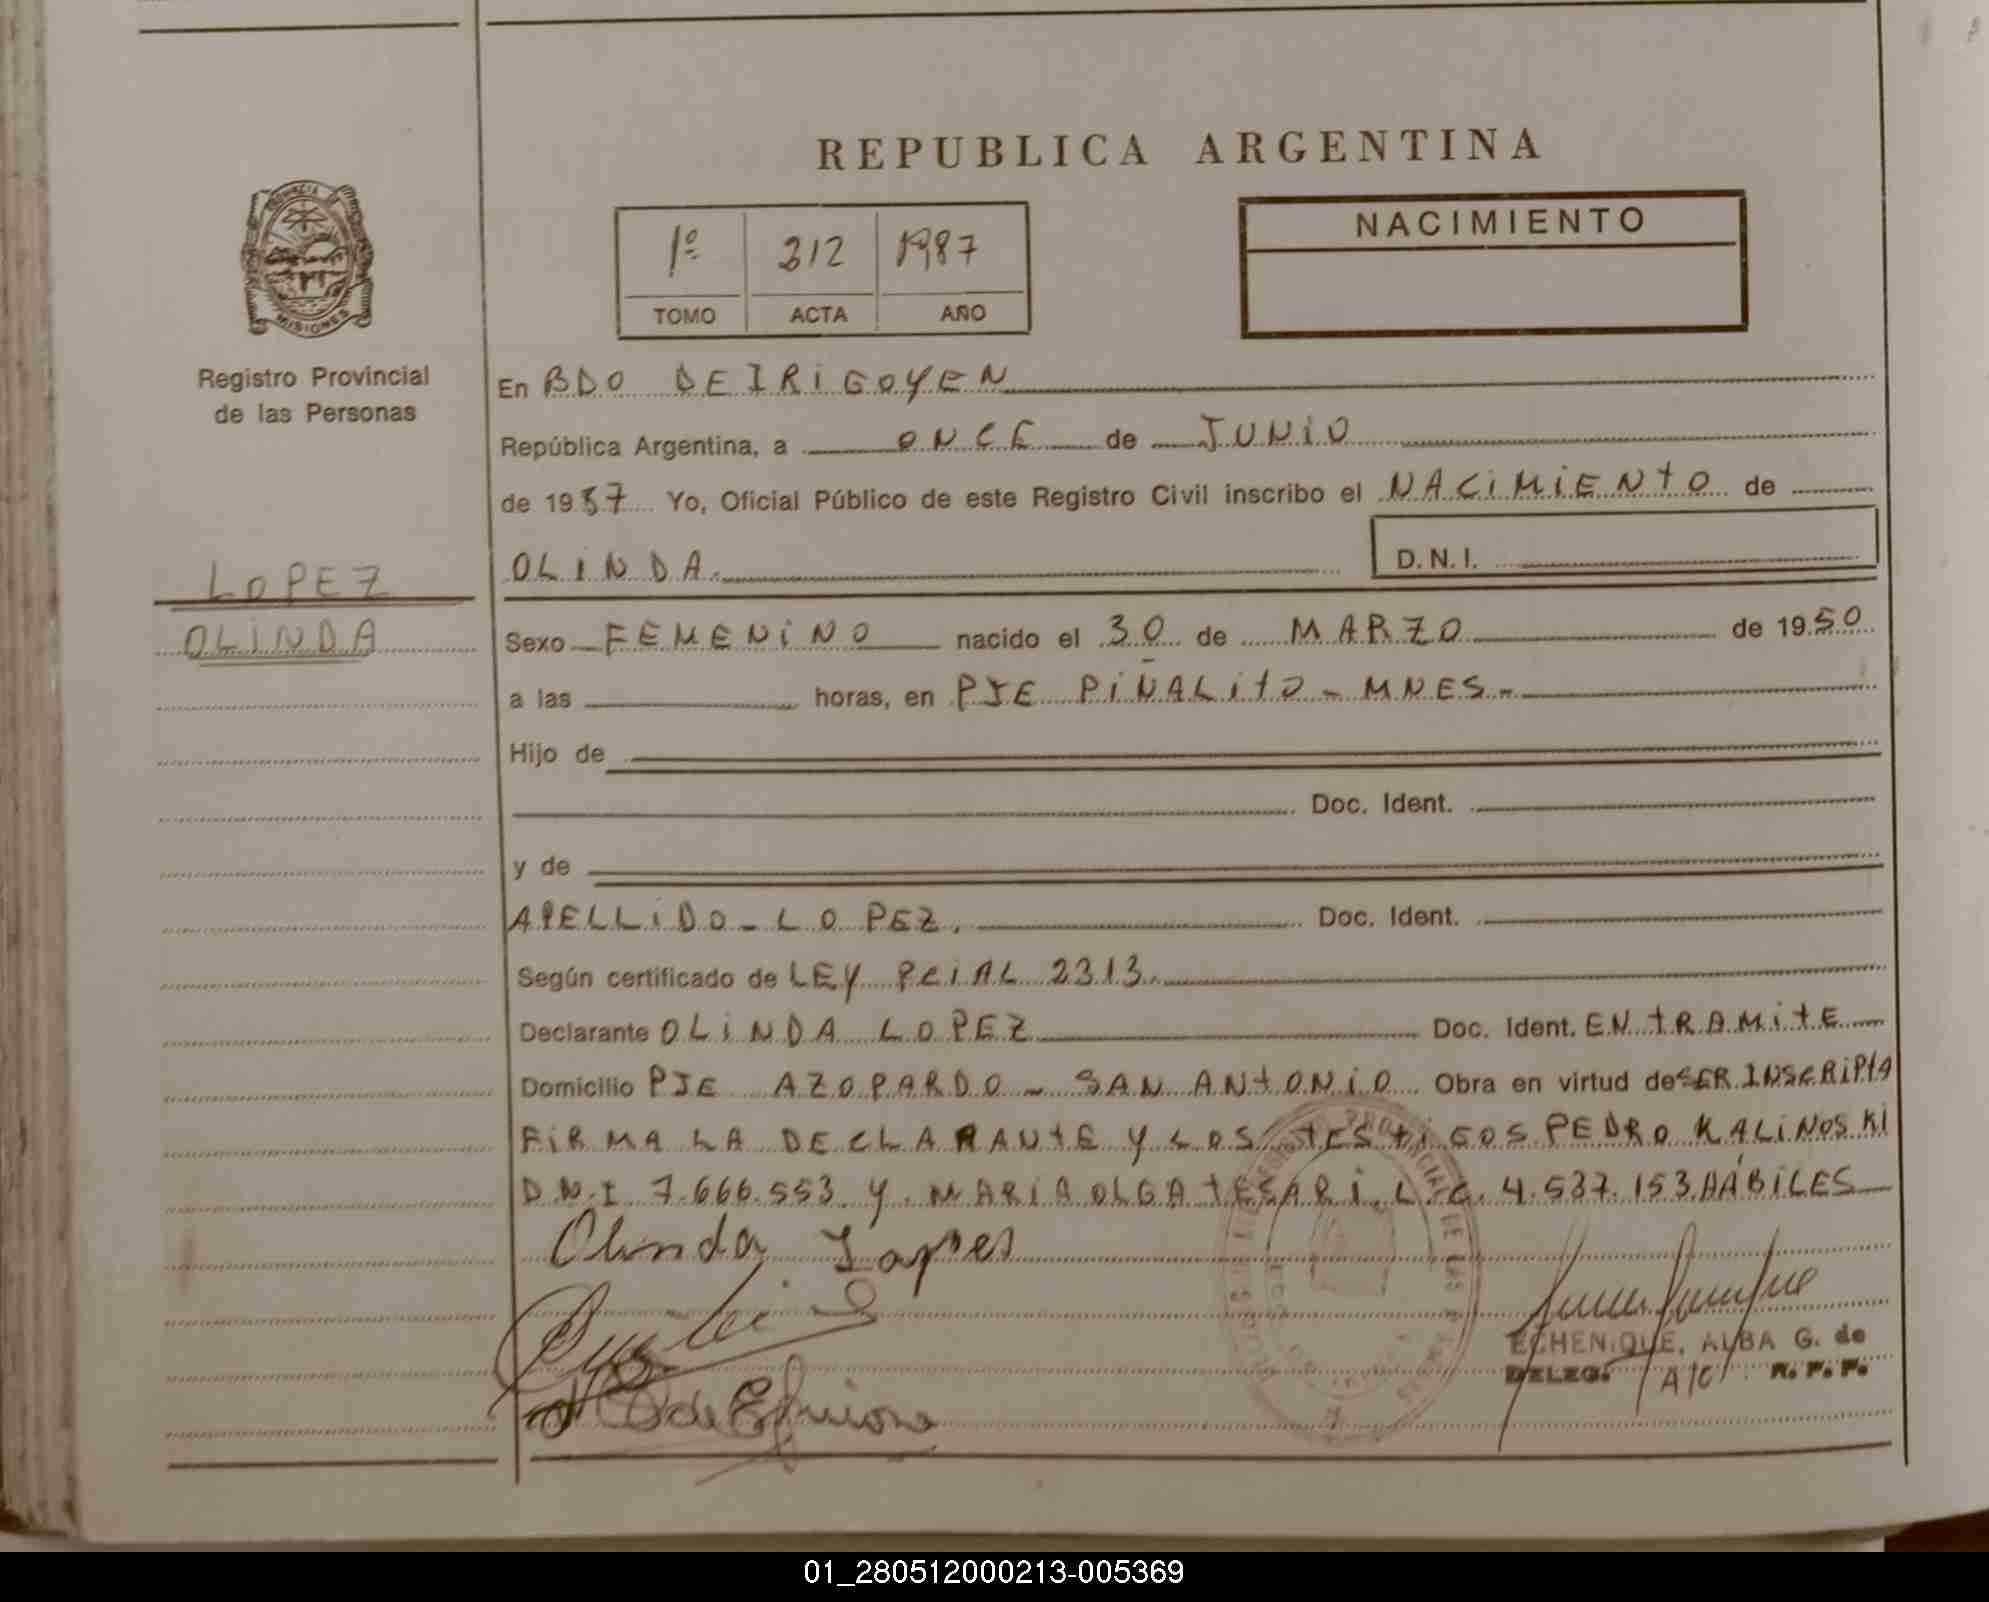 REPUBLICA ARGENTINA
PROVINCIA
MISIONES
Registro Provincial
de las Personas
1º 212 1987
TOMO ACTA AÑO
NACIMIENTO
En BDO DE IRIGOYEN
República Argentina, a ONCE de JUNIO
de 1987 Yo, Oficial Público de este Registro Civil inscribo el NACIMIENTO de
OLINDA. D.N.I.
LOPEZ
OLINDA
Sexo FEMENINO nacido el 30 de MARZO de 1950
a las horas, en PJE PIÑALITO - MNES -
Hijo de
Doc. Ident.
y de
APELLIDO - LOPEZ. Doc. Ident.
Según certificado de LEY PCIAL 2313.
Declarante OLINDA LOPEZ Doc. Ident. EN TRAMITE
Domicilio PJE AZOPARDO - SAN ANTONIO Obra en virtud de SER INSCRIPTA
FIRMA LA DECLARANTE Y LOS TESTIGOS PEDRO KALINOSKI
D.N.I 7.666.553 Y MARIA OLGA TESARI L.C. 4.537.153 HÁBILES
Olinda Lopes
ECHENIQUE, ALBA G. de
DELEG. A/C R. P. P.
01_280512000213-005369